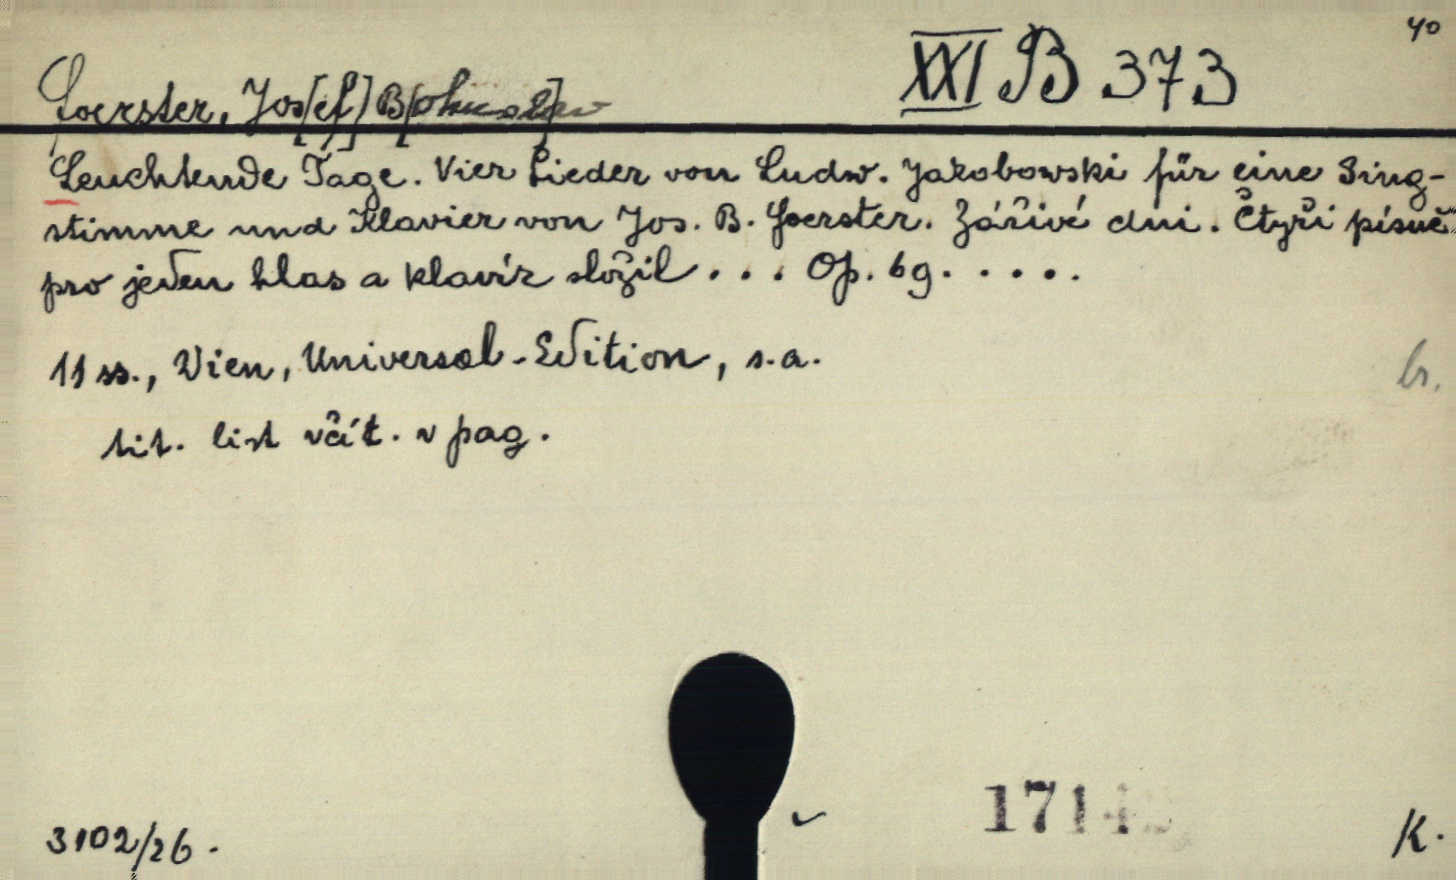 40
XXI B 373
Foerster, Jos[ef] B[ohuslav]
Leuchtende Tage. Vier Lieder von Ludw. Jakobowski für eine Sing-
stimme und Klavier von Jos. B. Foerster. Zářivé dni. Čtyři písně
pro jeden hlas a klavír složil . . . Op. 69. . . . .
11 ss., Wien, Universal-Edition, s.a.
br.
tit. list včít. v pag.
3102/26.
K.